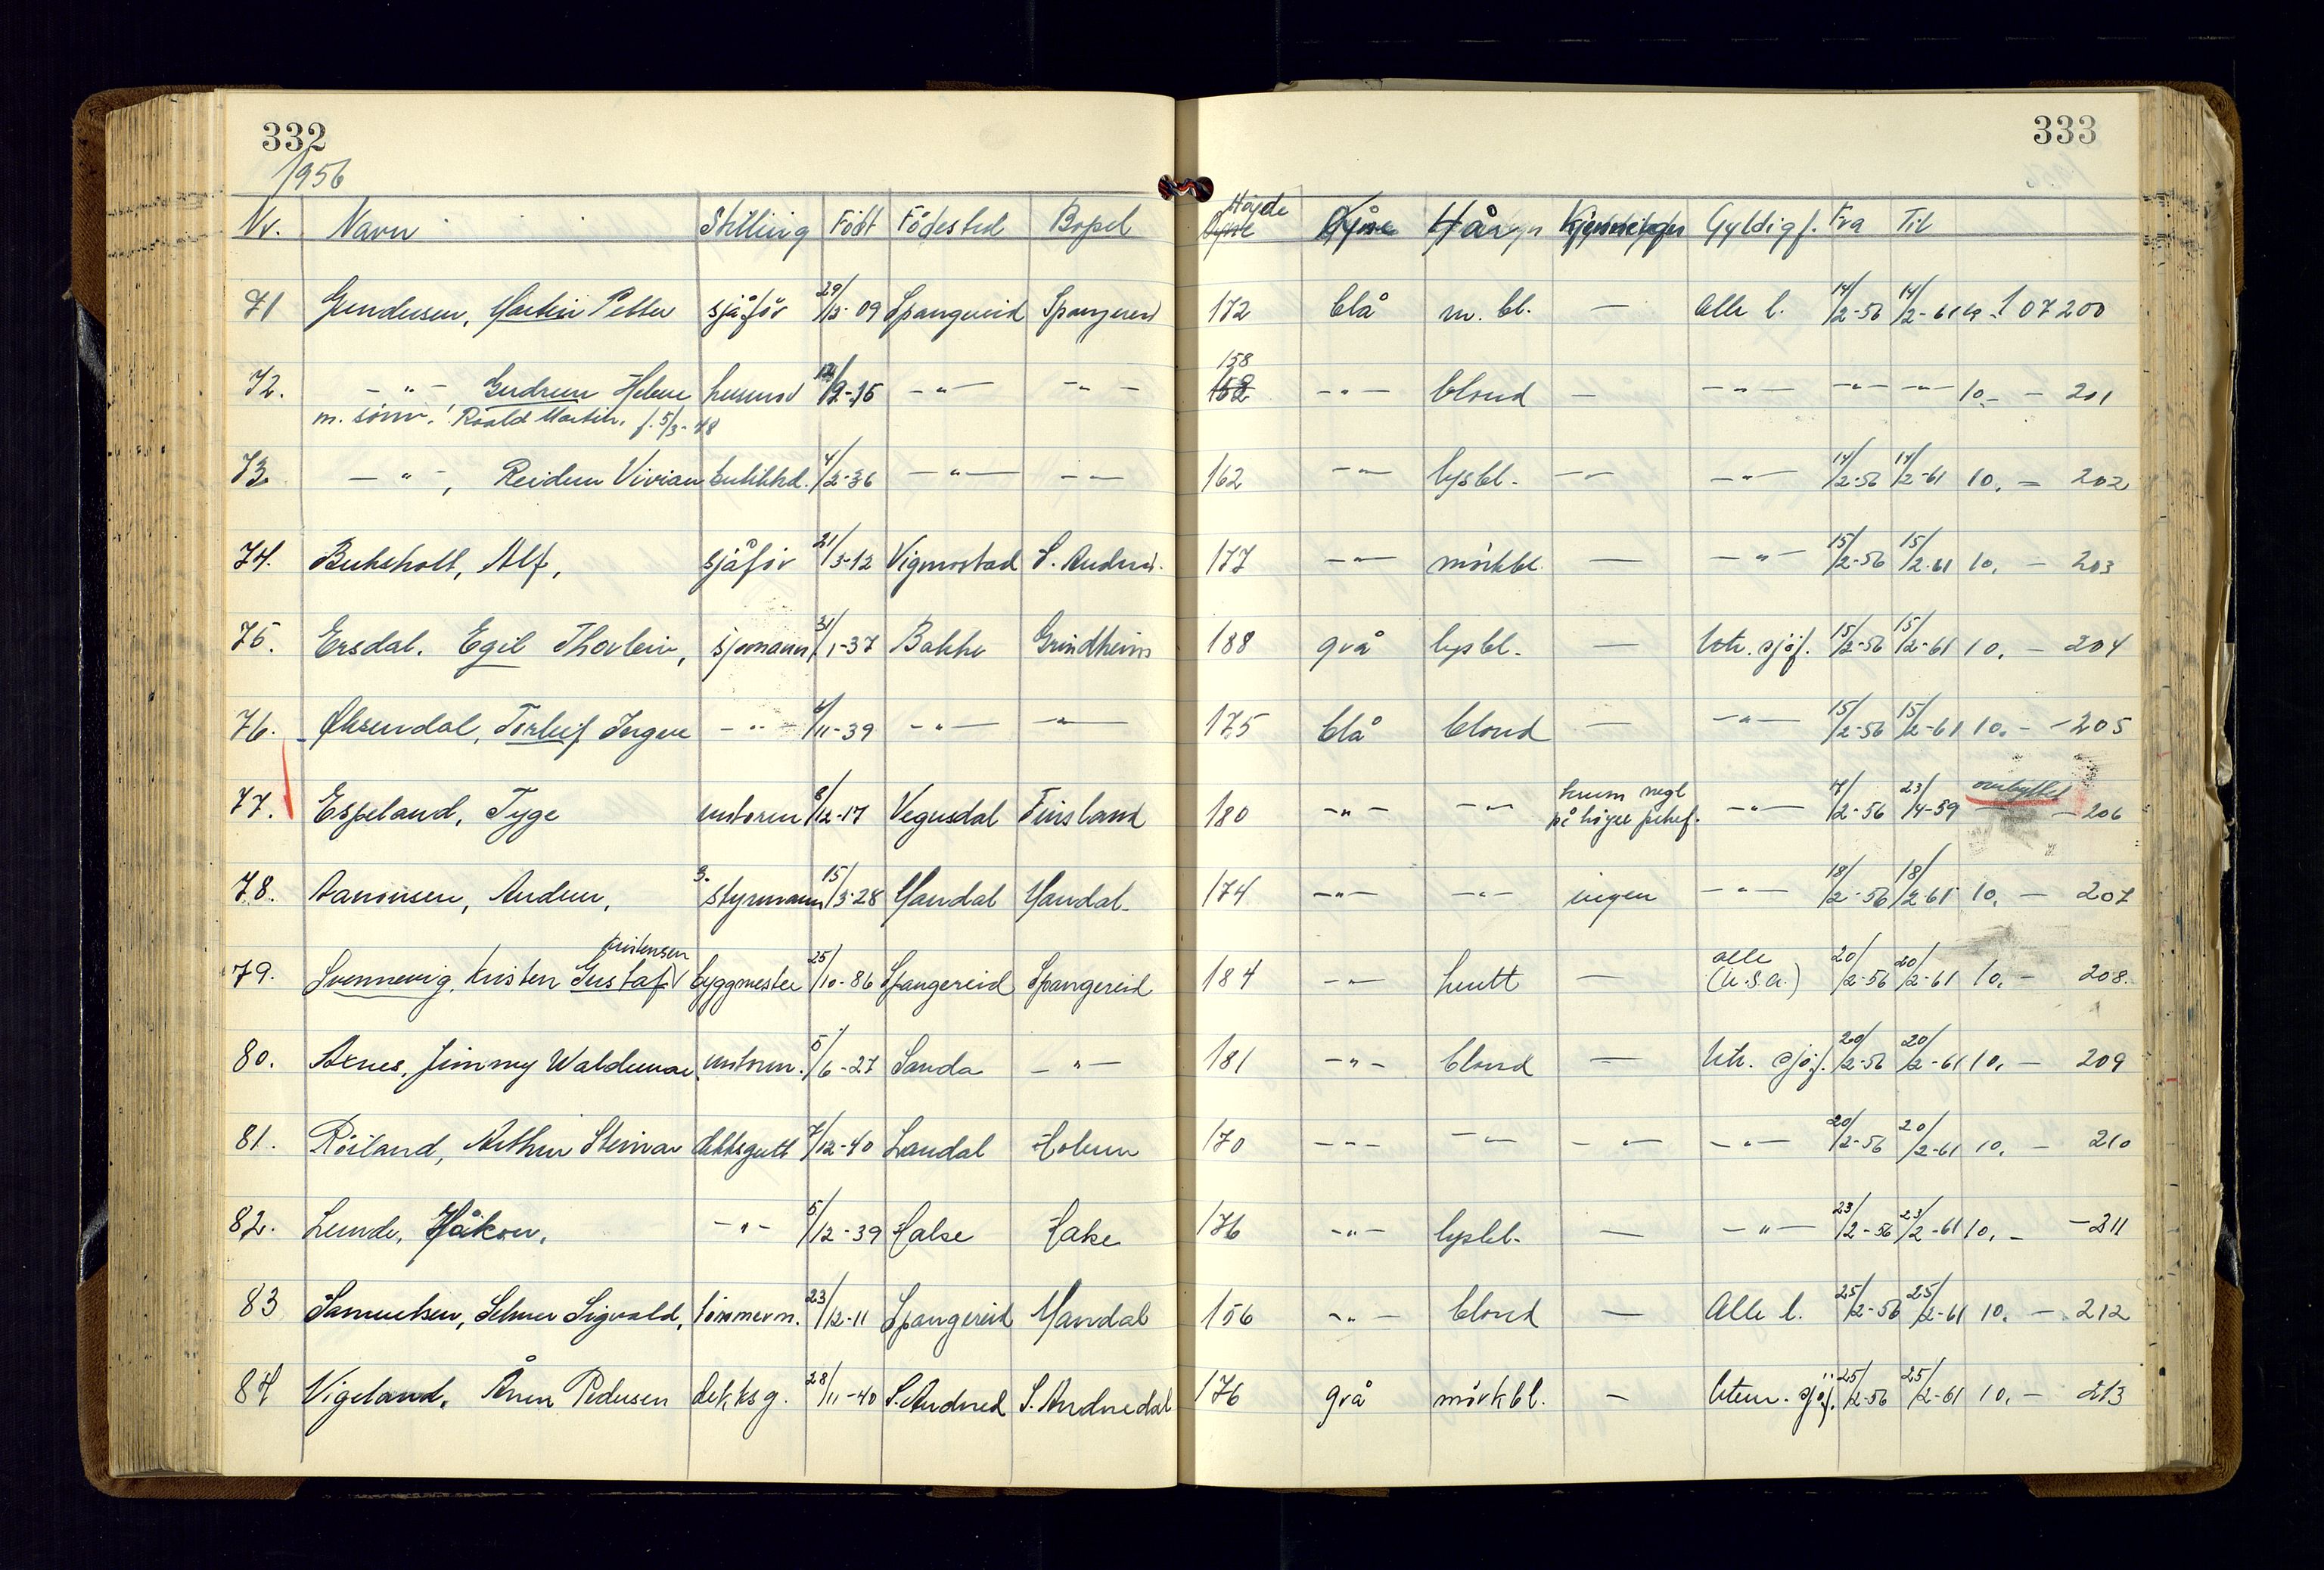 332
333
1956
Nr. Navn Stilling Født Födested Bopel Höyde Hår Gyldig f. Fra Til
71 Gundersen, Martin Petter sjåför 29/ -09 Spangereid Spangereid 172 blå m. bl. — Alle l. 14/2-56 14/2-61 10.- 107200
158
72. -"- Gudrun Helene husmor /9-16 -"- -"- 162 -"- blond — -"- -"- -"- 10.- - 201
m. sönn: Roald Martin, f. 5/3-48
73. -"-, Reidun Vivian butikkd. 4/2-36 -"- -"- 162 -"- lysbl. -"- -"- 14/2-56 14/2-61 10.- 202
74. Buhsholt, Alf, sjåför 21/3-12 Vigmostad S. Audned. 177 -"- mörkbl. — -"- 15/2-56 15/2-61 10.- 203
75. Ersdal, Egil Thorlein, sjömann 31/1-37 Bakke Grindheim 188 grå lysbl. — Utr. sjöf. 15/2-56 15/2-61 10.- 204
76. Öksendal, Torleif Ingve -"- /11-39 -"- -"- 175 blå blond — -"- 15/2-56 15/2-61 10.- -205
krum negl
77. Espeland, Tyge motorm 8/12-17 Vegusdal Finsland 180 -"- -"- på högre pekef. -"- 7/2-56 23/4-59 ombyttet - 206
78. Aanonsen, Audun, 3. styrmann 15/3-28 Mandal Mandal 174 -"- -"- ingen -"- 18/2-56 18/2-61 10.- 207
Kristensen
79. Svennevig, Kristen Gustaf byggmester 25/10-86 Spangereid Spangereid 184 -"- hvitt — alle (U.S.A.) 20/2-56 20/2-61 10.- 208.
80. Axnes, Jimmy Waldemar, motorm. 5/6-27 Sanda -"- 181 -"- blond — Utr. sjöf. 20/2-56 20/2-61 10.- 209
81. Röiland, Arthur Steinar dekksgutt 7/12-40 Laudal Holum 170 -"- -"- -"- -"- 20/2-56 20/2-61 10.- 210
82. Lunde, Håkon, -"- 5/12-39 Halse Halse 176 -"- lysbl. — -"- 23/2-56 23/2-61 10.- -211
83 Samuelsen, Selmer Sigvald, tömmerm. 23/12-11 Spangereid Mandal 156 -"- blond — Alle l. 25/2-56 25/2-61 10.- 212
84 Vigeland, Ånen Pedersen dekksg. 28/11-40 S. Audned S. Audnedal 176 grå mörkbl. — Uten. sjöf. 25/2-56 25/2-61 10.- 213